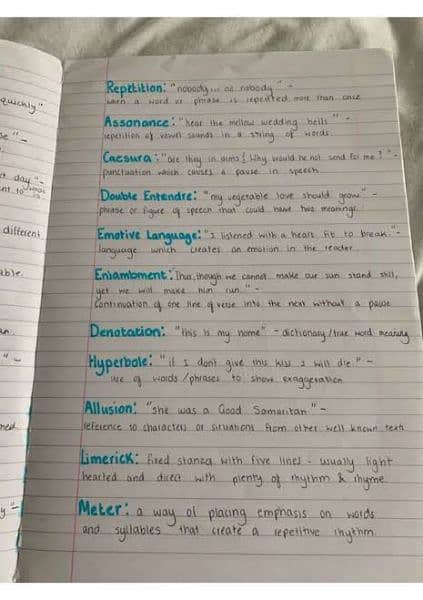 quickly"
Repetition: "nobody... no nobody" -
when a word or phrase is repeated more than once
Assonance: "hear the mellow wedding bells" -
repetition of vowel sounds in a string of words.
Caesura: "are they in arms? Why would he not send for me?" -
punctuation which causes a pause in speech
day"-
Double Entendre: "my vegetable love should grow" -
phrase or figure of speech that could have two meanings
different
Emotive Language: "I listened with a heart fit to break." -
language which creates an emotion in the reader.
Enjambment: Thus, though we cannot make our sun stand still,
yet we will make him run." -
Continuation of one line of verse into the next without a pause
Denotation: "this is my home" - dictionary/true word meaning
Hyperbole: "if I don't give this kiss I will die" -
use of words/phrases to show exaggeration
Allusion: "she was a Good Samaritan" -
reference to characters or situations from other well known texts
Limerick: fixed stanza with five lines - usually light
hearted and direct with plenty of rhythm & rhyme.
Meter: a way of placing emphasis on words
and syllables that create a repetitive rhythm.